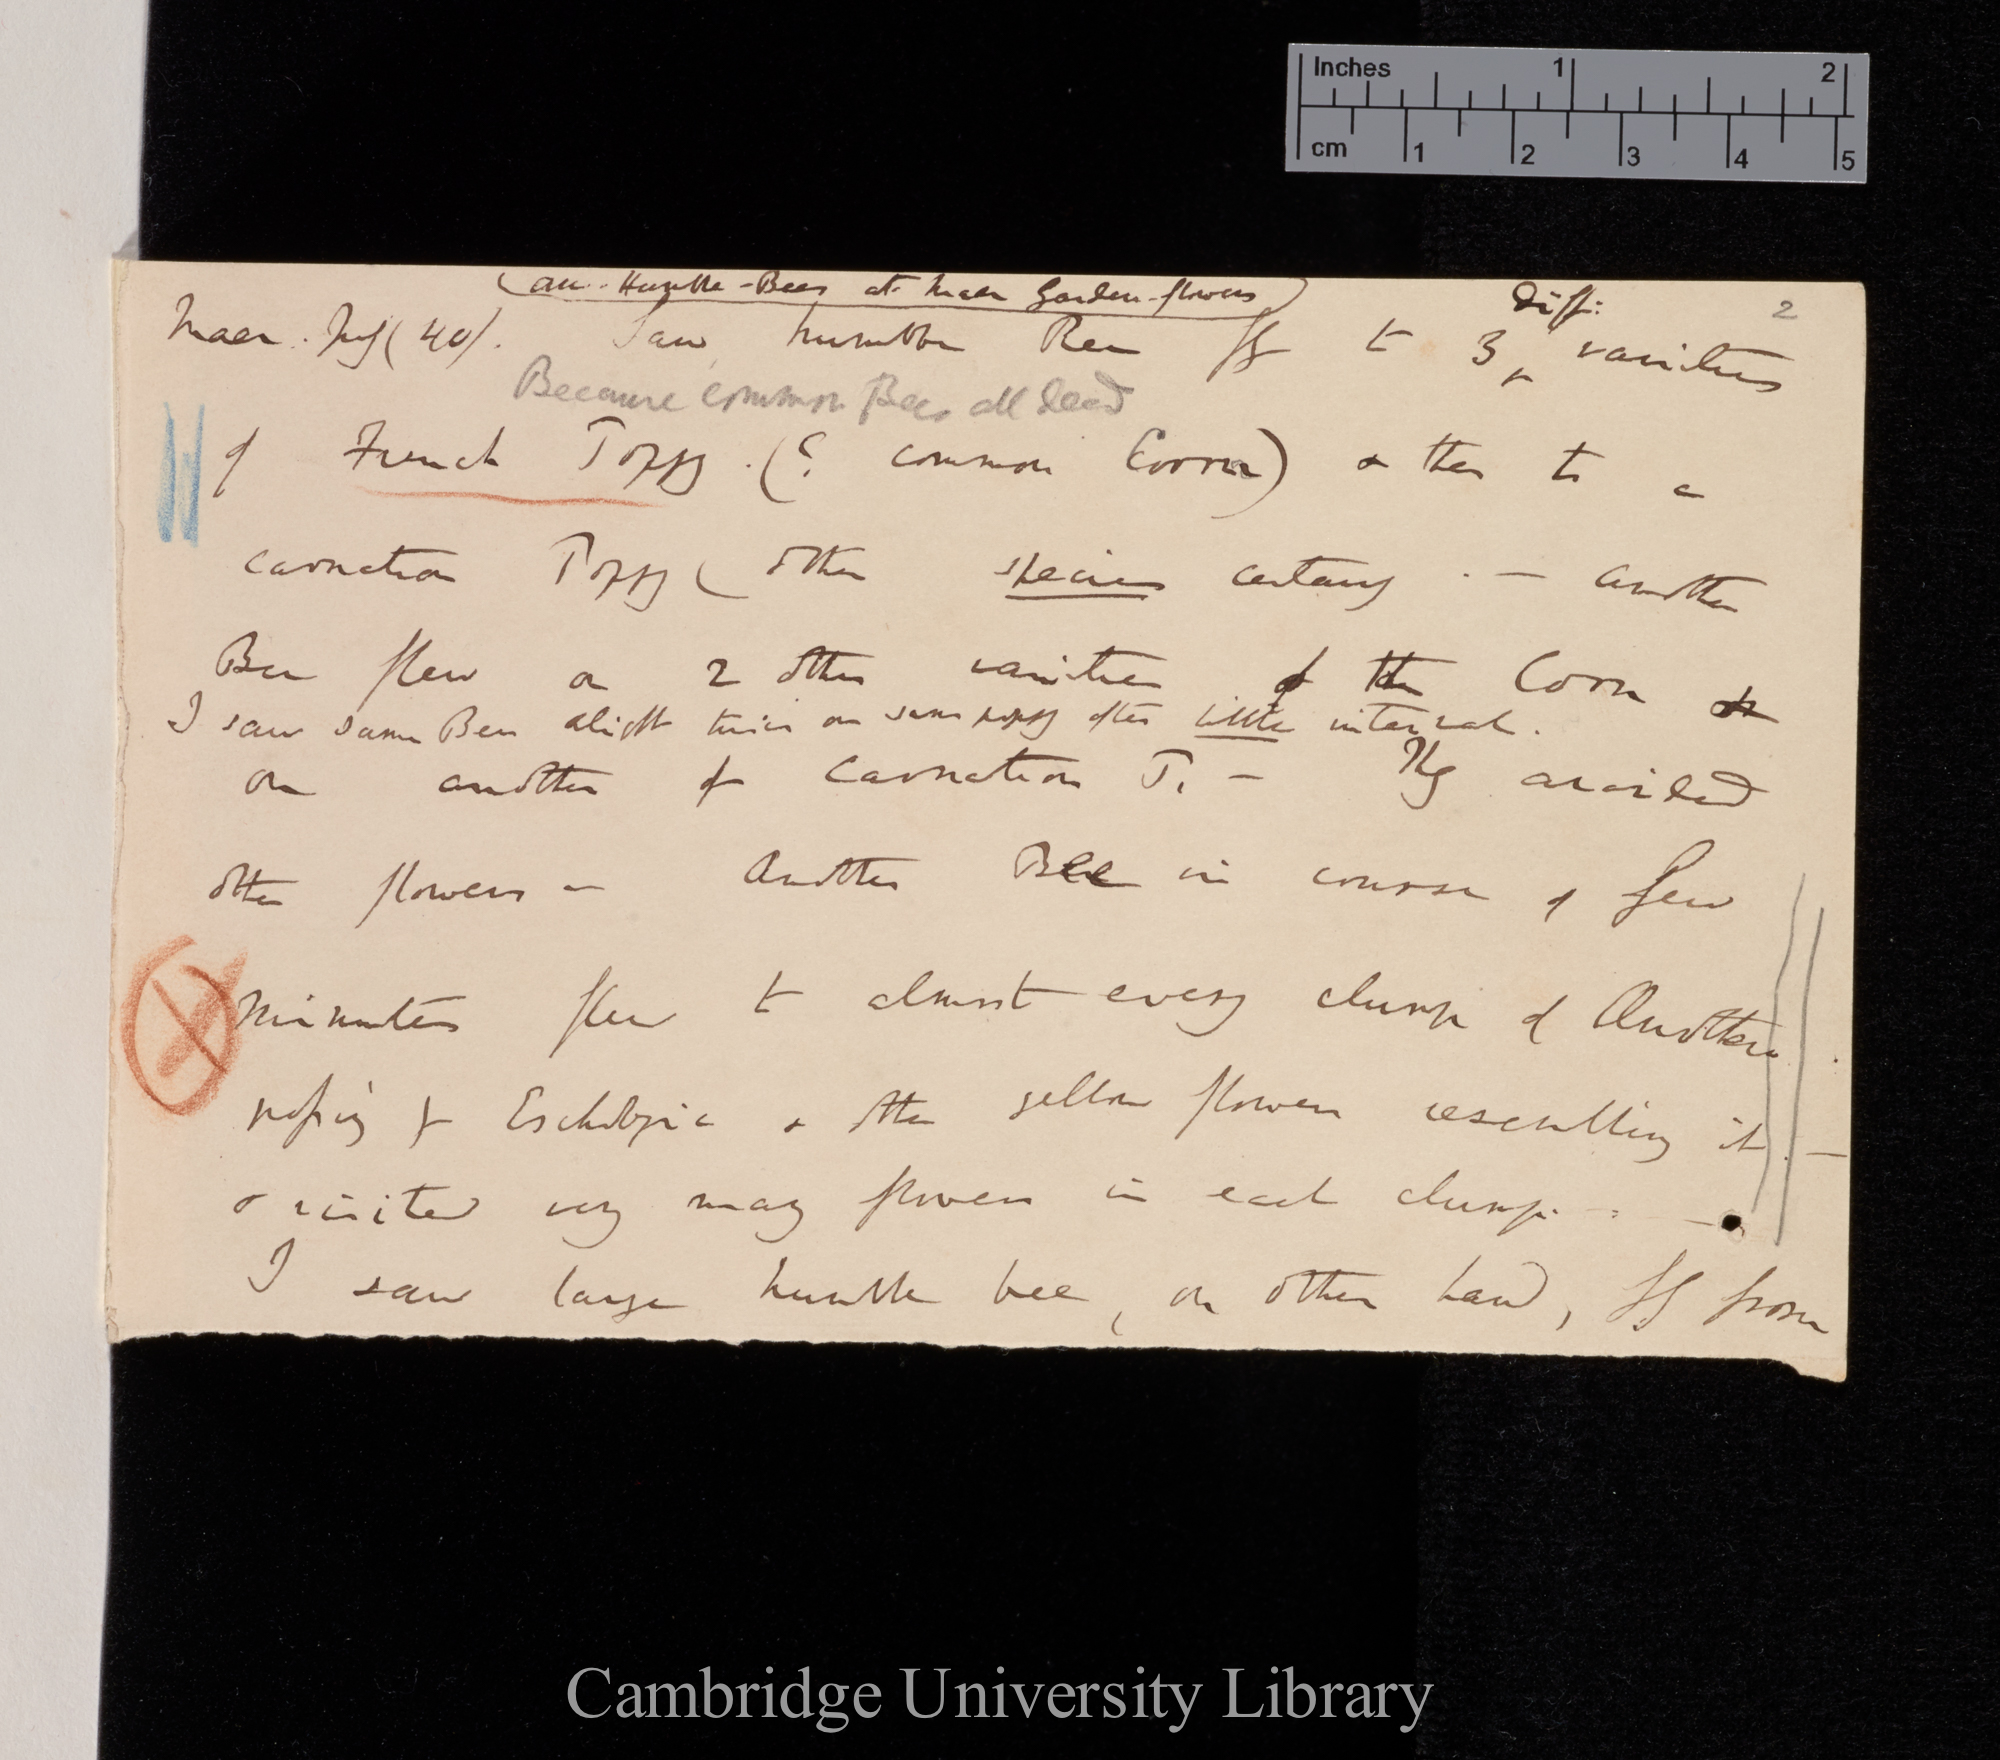 Inches 1 2
cm 1 2 3 4 5
(all Humble-Bees at Maer Garden-flowers)
2
Maer. July (40). Saw humble Bee fly to 3 diff: varieties
Because common Bees all dead
of French Poppy. (? common Corn) & then to a
carnation Poppy (other species certainly. — another
Bee flew on 2 other varieties of the Corn &
I saw same Bee alight twice on same poppy after little interval.
on another of Carnation P. — They avoided
other flowers — Another Bee in course of few
minutes flew to almost every clump of Another
& other yellow flower resembling it. —
& visited very many flowers in each clump. —
I saw large humble bee, on other hand, fly from
Cambridge University Library